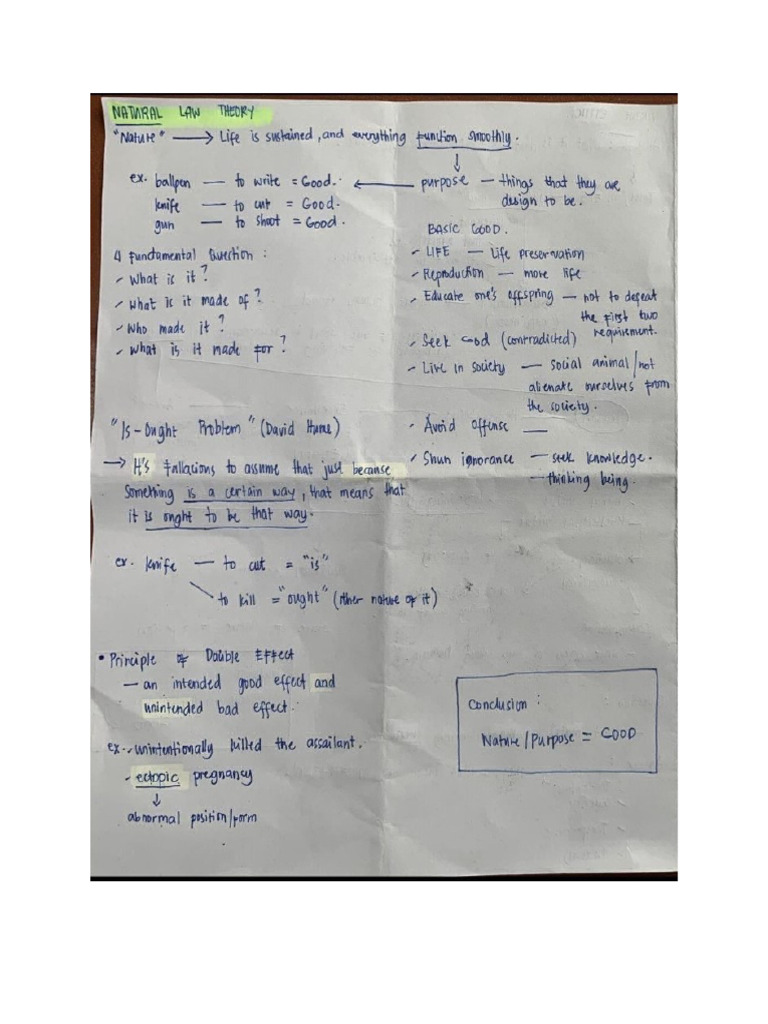 NATURAL LAW THEORY
"Nature" → Life is sustained, and everything function smoothly.
ex. ballpen — to write = Good. ← purpose — things that they are
design to be.
knife — to cut = Good.
gun — to shoot = Good.
4 Fundamental Question :
- What is it?
- What is it made of?
- Who made it?
- What is it made for?
BASIC GOOD.
- LIFE — Life preservation
- Reproduction — more life
- Educate one's offspring — not to defeat
the first two
requirement.
- Seek God (contradicted)
- Live in society — social animal/not
alienate ourselves from
the society.
- Avoid offense —
- Shun ignorance — seek knowledge.
— thinking being.
"Is-Ought Problem" (David Hume)
→ It's fallacious to assume that just because
something is a certain way, that means that
it is ought to be that way.
ex. knife — to cut = "is"
to kill = "ought" (other nature of it)
• Principle of Double Effect
— an intended good effect and
unintended bad effect.
ex. - unintentionally killed the assailant.
- ectopic pregnancy
↓
abnormal position/form
Conclusion :
Nature/Purpose = GOOD